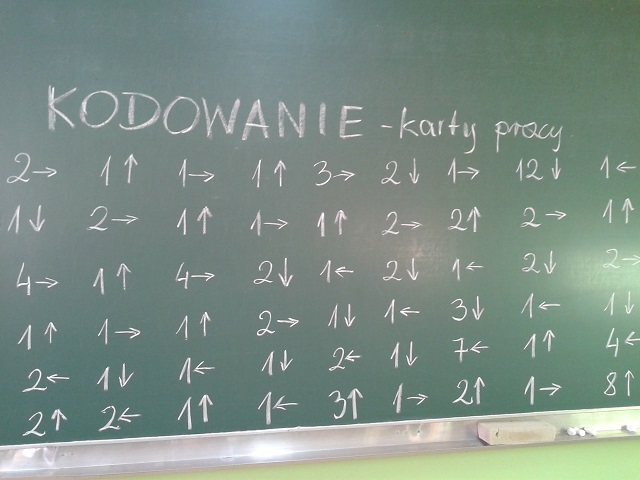 KODOWANIE - karty pracy
2→ 1↑ 1→ 1↑ 3→ 2↓ 1→ 12↓ 1←
1↓ 2→ 1↑ 1→ 1↑ 2→ 2↑ 2→ 1↑
4→ 1↑ 4→ 2↓ 1← 2↓ 1← 2↓ 2→
1↑ 1→ 1↑ 2→ 1↓ 1← 3↓ 1← 1↓
2← 1↓ 1← 1↓ 2← 1↓ 7← 1↑ 4←
2↑ 2← 1↑ 1← 3↑ 1→ 2↑ 1→ 8↑